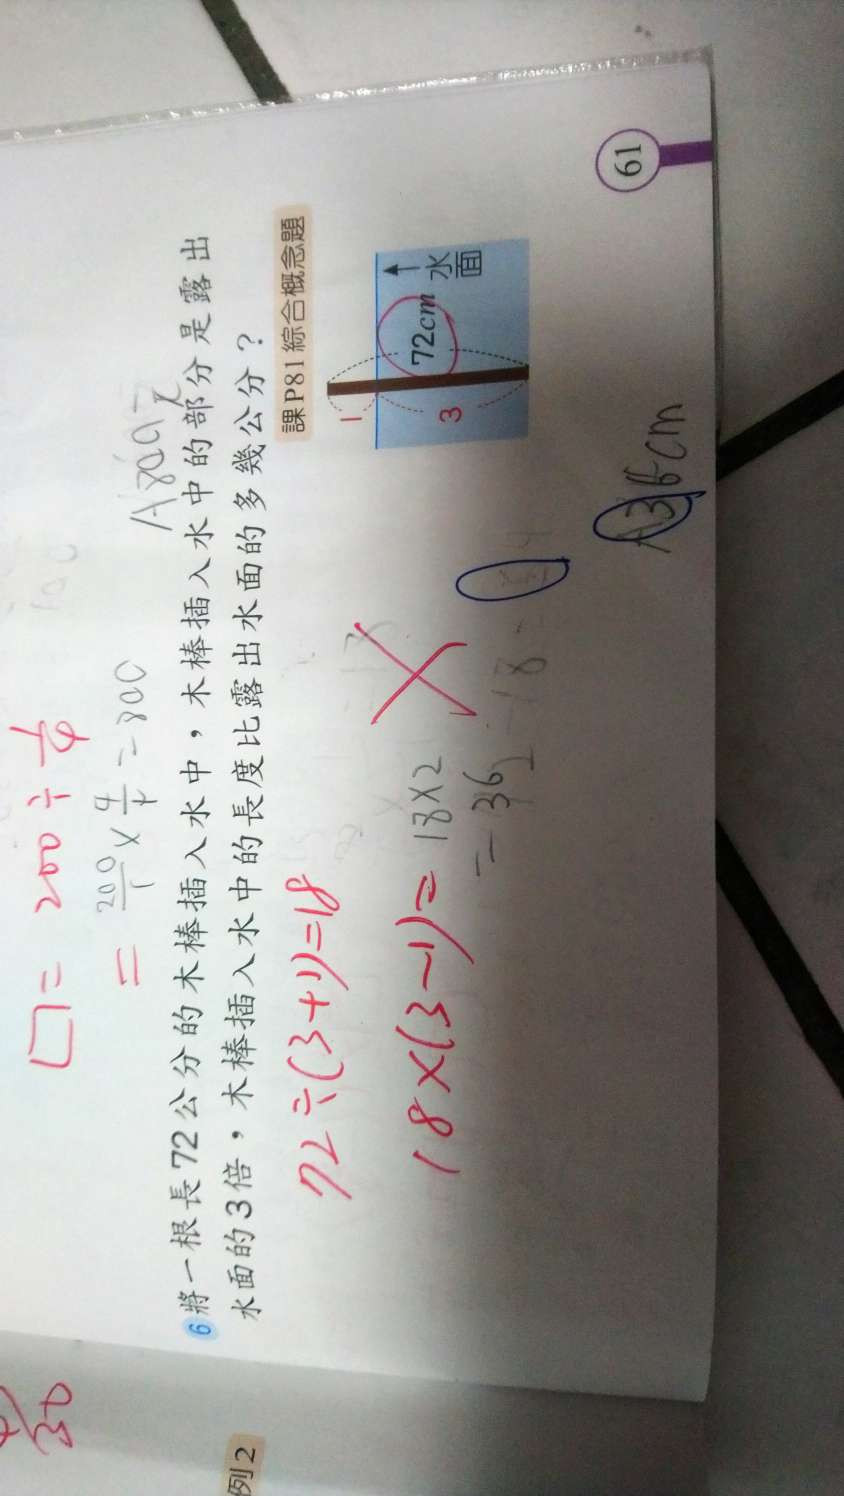 □=200÷
=200/1×4/1=800
6 將一根長72公分的木棒插入水中，木棒插入水中的部分是露出
水面的3倍，木棒插入水中的長度比露出水面的多幾公分？
課P81綜合概念題
72÷(3+1)=18
18×(3-1)=18×2
=36
1
3
72cm
水面
cm
61
例2